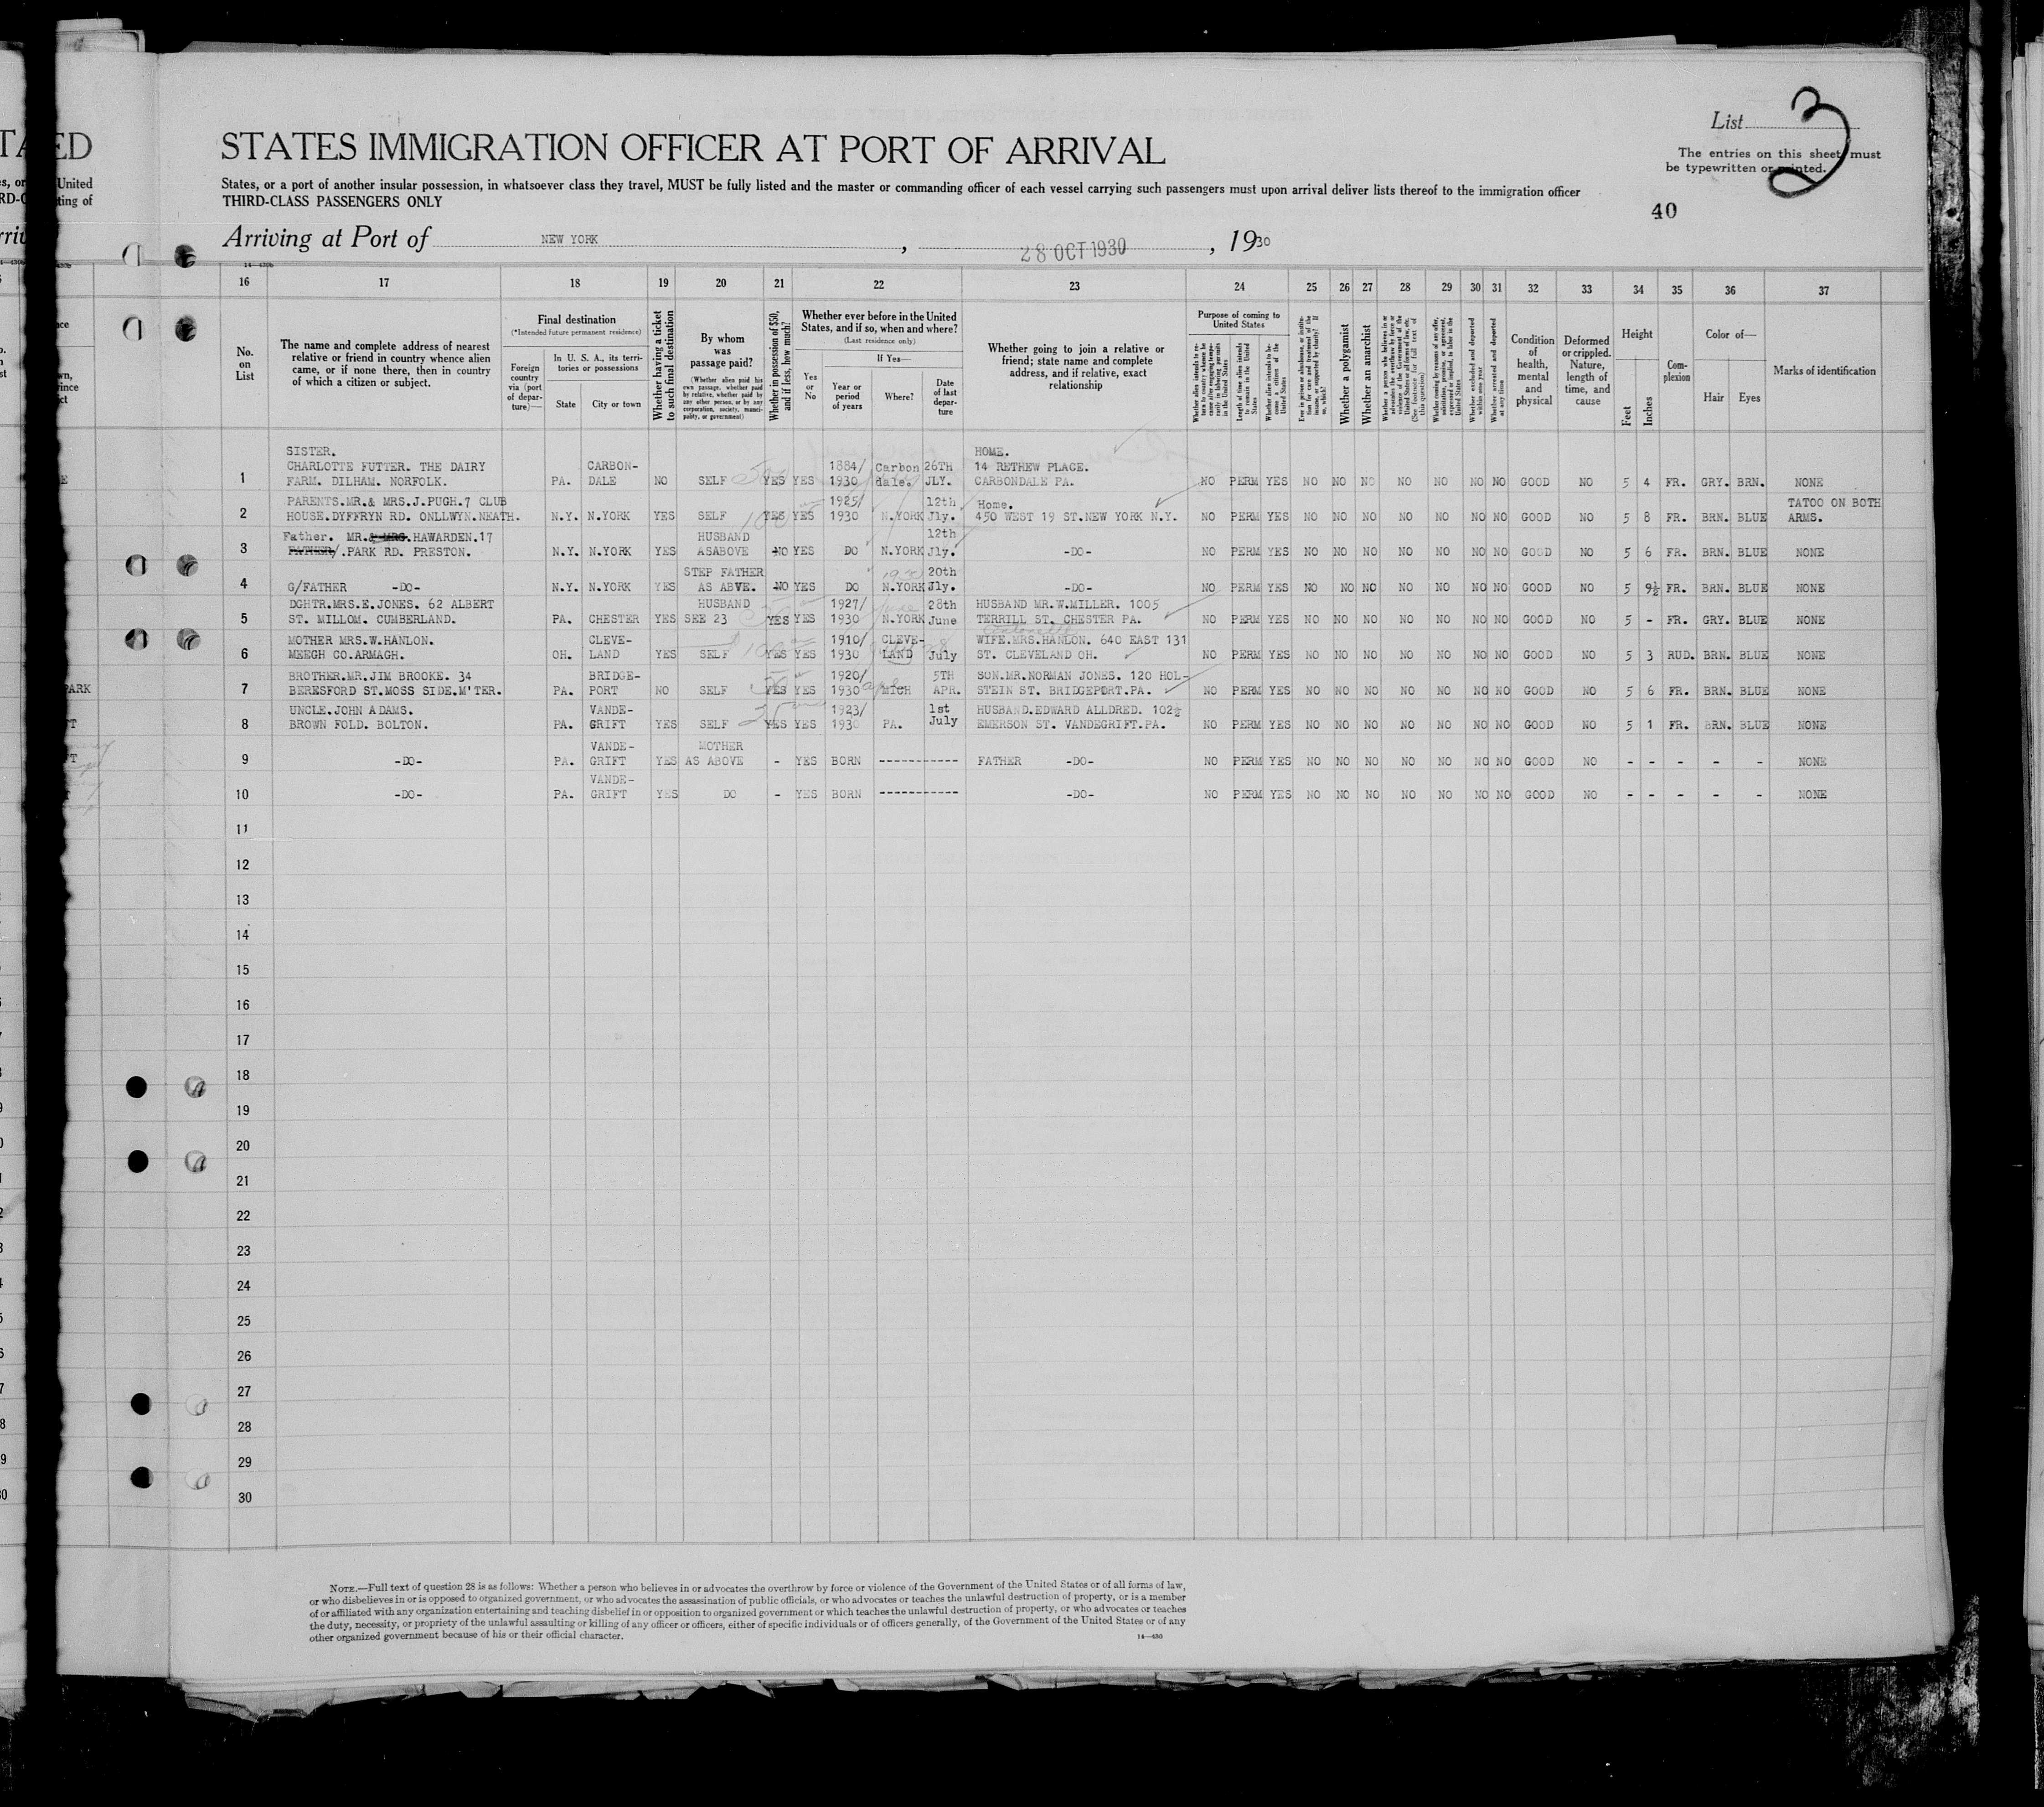 STATES IMMIGRATION OFFICER AT PORT OF ARRIVAL
States, or a port of another insular possession, in whatsoever class they travel, MUST be fully listed and the master or commanding officer of each vessel carrying such passengers must upon arrival deliver lists thereof to the immigration officer
THIRD-CLASS PASSENGERS ONLY
List 3
The entries on this sheet must
be typewritten or printed.
40
Arriving at Port of NEW YORK, 28 OCT 1930, 1930
16 17 18 19 20 21 22 23 24 25 26 27 28 29 30 31 32 33 34 35 36 37
No.
on
List
The name and complete address of nearest
relative or friend in country whence alien
came, or if none there, then in country
of which a citizen or subject.
Final destination
(*Intended future permanent residence)
Foreign
country
via (port
of depar-
ture)—
In U. S. A., its terri-
tories or possessions
State
City or town
Whether having a ticket
to such final destination
By whom
was
passage paid?
(Whether alien paid his
own passage, whether paid
by relative, whether paid by
any other person, or by any
corporation, society, munici-
pality, or government)
Whether in possession of $50,
and if less, how much?
Whether ever before in the United
States, and if so, when and where?
(Last residence only)
Yes
or
No
If Yes—
Year or
period
of years
Where?
Date
of last
depar-
ture
Whether going to join a relative or
friend; state name and complete
address, and if relative, exact
relationship
Purpose of coming to
United States
Whether a polygamist
Whether an anarchist
Condition
of
health,
mental
and
physical
Deformed
or crippled.
Nature,
length of
time, and
cause
Height
Feet
Inches
Com-
plexion
Color of—
Hair
Eyes
Marks of identification
SISTER. HOME.
CHARLOTTE FUTTER. THE DAIRY CARBON- 1884/ Carbon 26TH 14 RETHEW PLACE.
1 FARM. DILHAM. NORFOLK. PA. DALE NO SELF YES YES 1930 dale. JLY. CARBONDALE PA. NO PERM YES NO NO NO NO NO NO NO GOOD NO 5 4 FR. GRY. BRN. NONE
PARENTS.MR.& MRS.J.PUGH.7 CLUB 1925/ 12th Home. TATOO ON BOTH
2 HOUSE.DYFFRYN RD. ONLLWYN.NEATH. N.Y. N.YORK YES SELF YES YES 1930 N.YORK Jly. 450 WEST 19 ST.NEW YORK N.Y. NO PERM YES NO NO NO NO NO NO NO GOOD NO 5 8 FR. BRN. BLUE ARMS.
Father. MR.& MRS.HAWARDEN.17 HUSBAND 12th
3 FATHER/.PARK RD. PRESTON. N.Y. N.YORK YES ASABOVE NO YES DO N.YORK Jly. -DO- NO PERM YES NO NO NO NO NO NO NO GOOD NO 5 6 FR. BRN. BLUE NONE
STEP FATHER 1930 20th
4 G/FATHER -DO- N.Y. N.YORK YES AS ABVE. NO YES DO N.YORK Jly. -DO- NO PERM YES NO NO NO NO NO NO NO GOOD NO 5 9½ FR. BRN. BLUE NONE
DGHTR.MRS.E.JONES. 62 ALBERT HUSBAND 1927/ June 28th HUSBAND MR.W.MILLER. 1005
5 ST. MILLOM. CUMBERLAND. PA. CHESTER YES SEE 23 YES YES 1930 N.YORK June TERRILL ST. CHESTER PA. NO PERM YES NO NO NO NO NO NO NO GOOD NO 5 - FR. GRY. BLUE NONE
MOTHER MRS.W.HANLON. CLEVE- 1910/ CLEVE- WIFE.MRS.HANLON. 640 EAST 131
6 MEEGH CO.ARMAGH. OH. LAND YES SELF YES YES 1930 LAND July ST. CLEVELAND OH. NO PERM YES NO NO NO NO NO NO NO GOOD NO 5 3 RUD. BRN. BLUE NONE
BROTHER.MR.JIM BROOKE. 34 BRIDGE- 1920/ 5TH SON.MR.NORMAN JONES. 120 HOL-
7 BERESFORD ST.MOSS SIDE.M'TER. PA. PORT NO SELF YES YES 1930 MICH APR. STEIN ST. BRIDGEPORT.PA. NO PERM YES NO NO NO NO NO NO NO GOOD NO 5 6 FR. BRN. BLUE NONE
UNCLE.JOHN ADAMS. VANDE- 1923/ 1st HUSBAND.EDWARD ALLDRED. 102½
8 BROWN FOLD. BOLTON. PA. GRIFT YES SELF YES YES 1930 PA. July EMERSON ST. VANDEGRIFT.PA. NO PERM YES NO NO NO NO NO NO NO GOOD NO 5 1 FR. BRN. BLUE NONE
VANDE- MOTHER
9 -DO- PA. GRIFT YES AS ABOVE - YES BORN ----------- FATHER -DO- NO PERM YES NO NO NO NO NO NO NO GOOD NO - - - - - NONE
VANDE-
10 -DO- PA. GRIFT YES DO - YES BORN ----------- -DO- NO PERM YES NO NO NO NO NO NO NO GOOD NO - - - - - NONE
11
12
13
14
15
16
17
18
19
20
21
22
23
24
25
26
27
28
29
30
NOTE.—Full text of question 28 is as follows: Whether a person who believes in or advocates the overthrow by force or violence of the Government of the United States or of all forms of law,
or who disbelieves in or is opposed to organized government, or who advocates the assassination of public officials, or who advocates or teaches the unlawful destruction of property, or is a member
of or affiliated with any organization entertaining and teaching disbelief in or opposition to organized government or which teaches the unlawful destruction of property, or who advocates or teaches
the duty, necessity, or propriety of the unlawful assaulting or killing of any officer or officers, either of specific individuals or of officers generally, of the Government of the United States or of any
other organized government because of his or their official character.
14—430